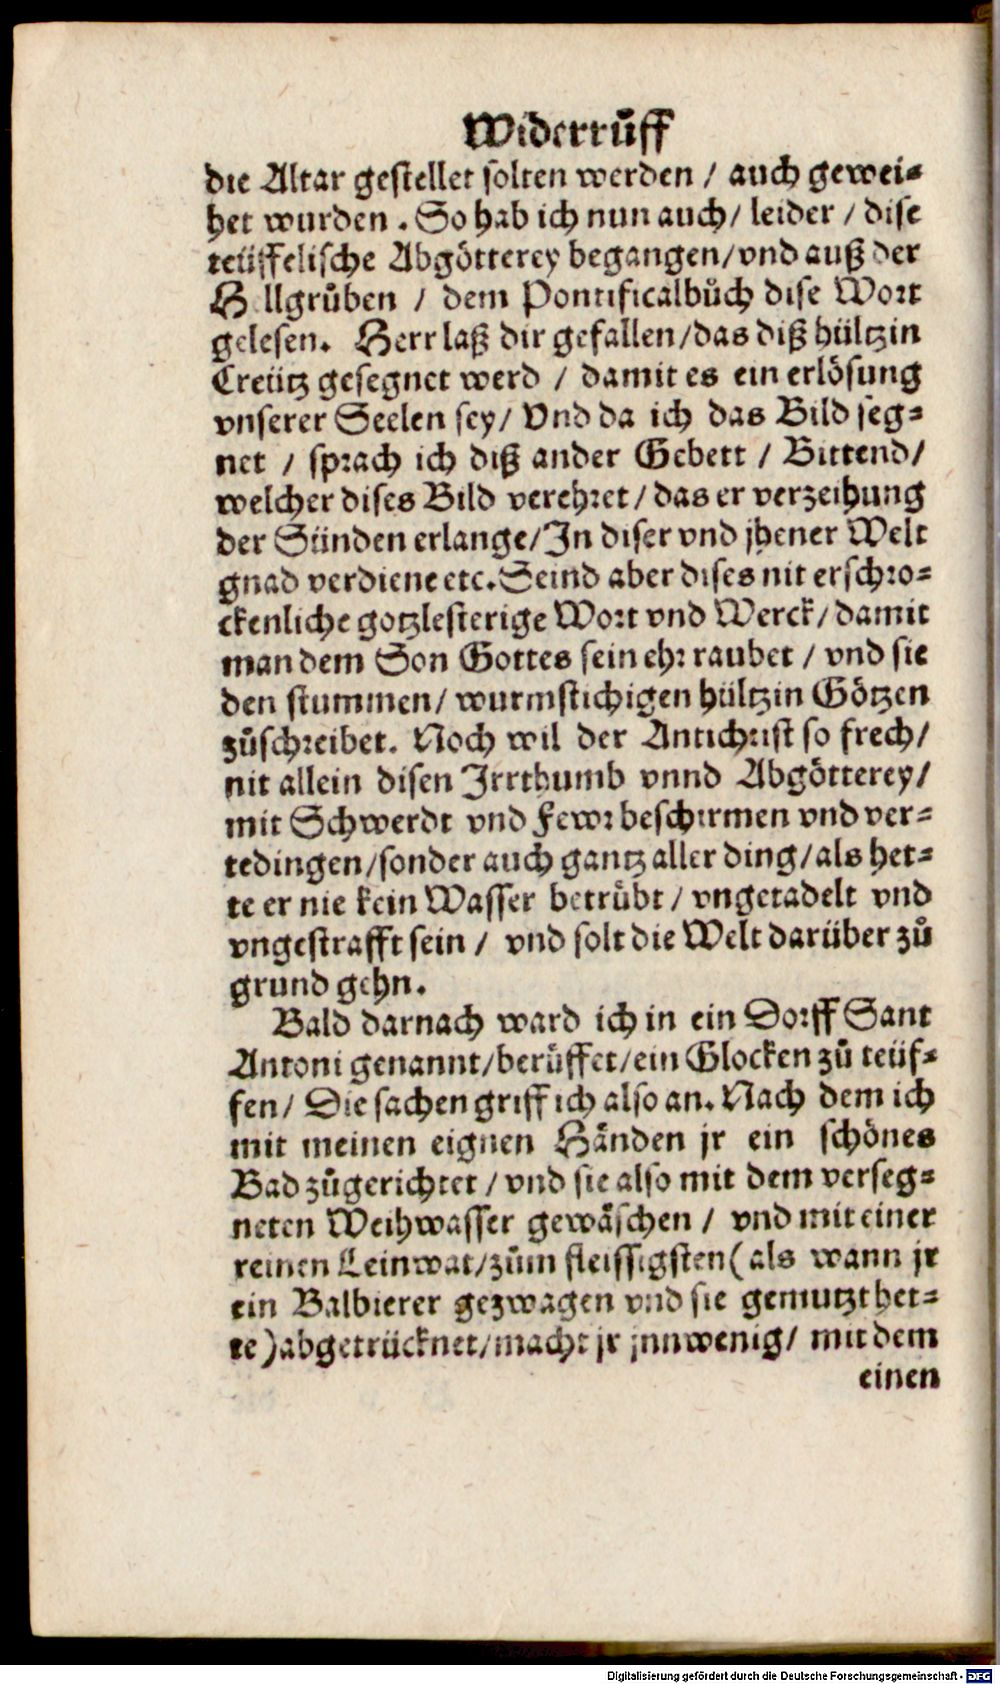 Widerrůff
die Altar gestellet solten werden / auch gewei⸗
het wurden . So hab ich nun auch / leider / dise
teüffelische Abgötterey begangen / vnd auß der
gelesen. Herr laß dir gefallen / das diß hültzin
Creütz gesegnet werd / damit es ein erlösung
vnserer Seelen sey / Vnd da ich das Bild seg⸗
net / sprach ich diß ander Gebett / Bittend /
welcher dises Bild verehret / das er verzeihung
der Sünden erlange / In diser vnd jhener Welt
gnad verdiene etc. Seind aber dises nit erschro⸗
ckenliche gotzlesterige Wort vnd Werck / damit
man dem Son Gottes sein ehr raubet / vnd sie
den stummen / wurmstichigen hültzin Götzen
zůschreibet. Noch wil der Antichrist so frech /
nit allein disen Irrthumb vnnd Abgötterey /
mit Schwerdt vnd Fewr beschirmen vnd ver⸗
tedingen / sonder auch gantz aller ding / als het⸗
te er nie kein Wasser betrübt / vngetadelt vnd
vngestrafft sein / vnd solt die Welt darüber zů
grund gehn.
Bald darnach ward ich in ein Dorff Sant
Antoni genannt / berůffet / ein Glocken zů teüf⸗
fen / Die sachen griff ich also an. Nach dem ich
mit meinen eignen Händen jr ein schönes
Bad zůgerichtet / vnd sie also mit dem verseg⸗
neten Weihwasser gewäschen / vnd mit einer
reinen Leinwat / zům fleissigsten ( als wann jr
ein Balbierer gezwagen vnd sie gemutzt het⸗
te ) abgetrücknet / macht jr jnnwenig / mit dem
einen
Digitalisierung gefördert durch die Deutsche Forschungsgemeinschaft - DFG